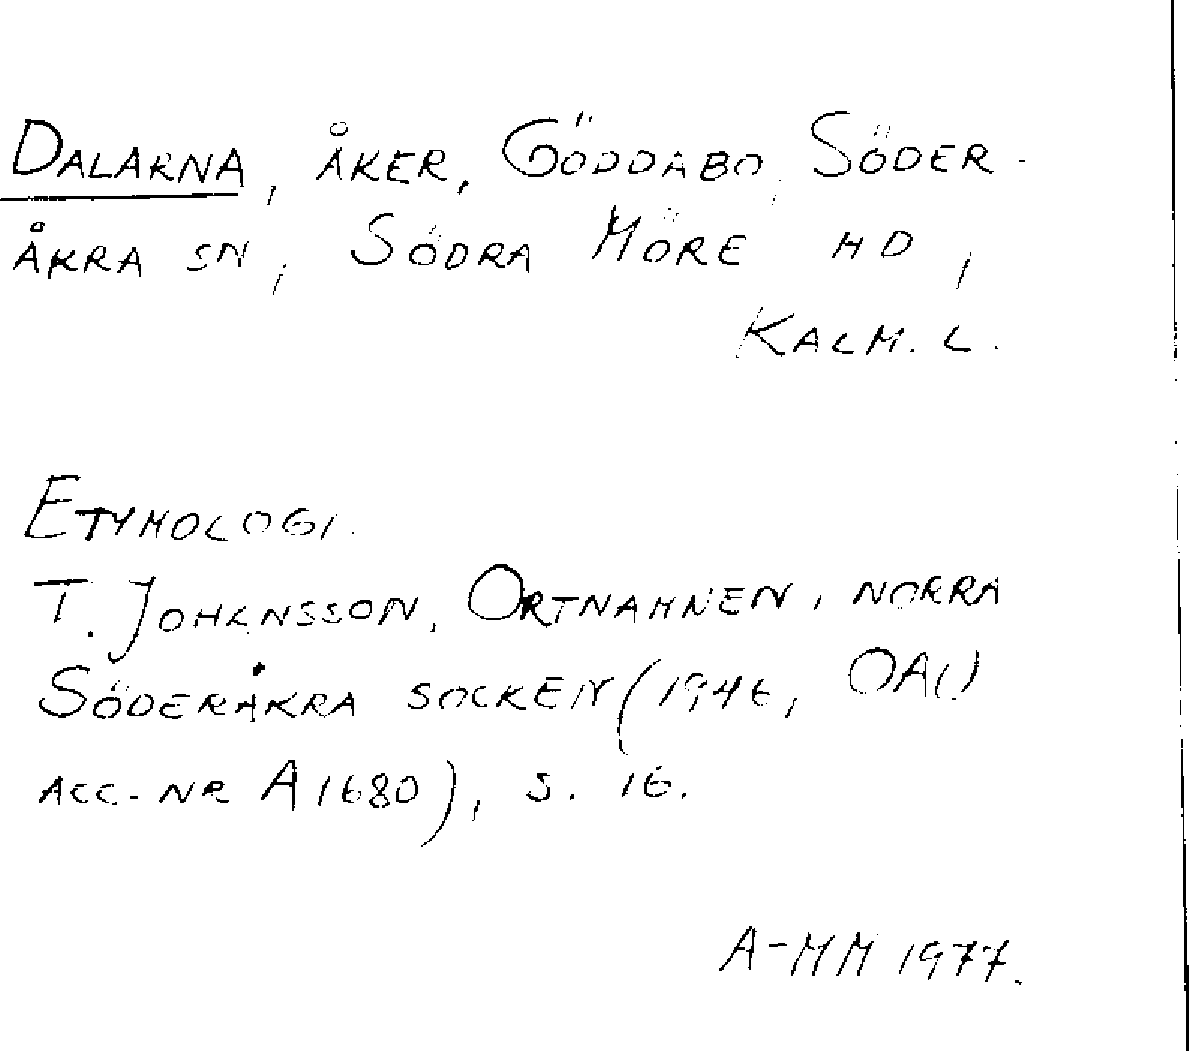 DALARNA, ÅKER, GÖDDABO, SÖDER-
ÅKRA SN, SÖDRA MÖRE HD,
KALM. L.
ETYMOLOGI.
T. JOHANSSON, ORTNAMNEN I NORRA
SÖDERÅKRA SOCKEN (1946, OAU
ACC-NR A1680), S. 16.
A-MM 1977.